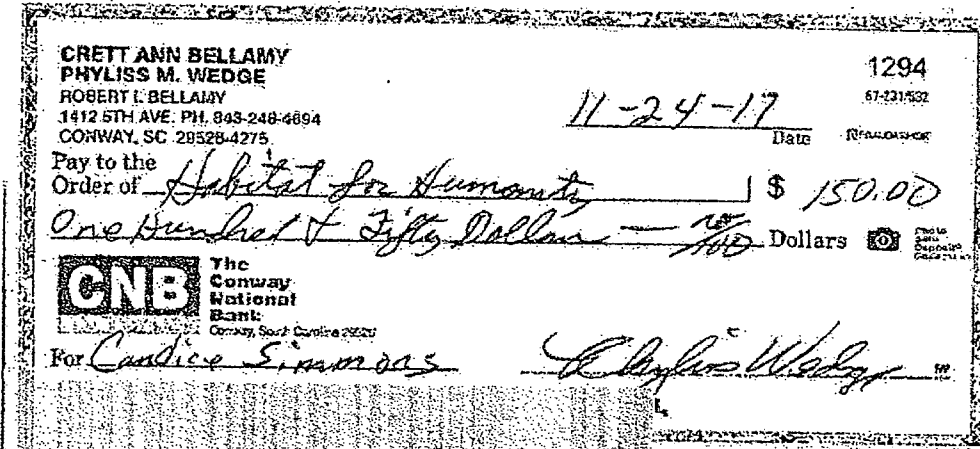 CRETT ANN BELLAMY
PHYLISS M. WEDGE
ROBERT L BELLAMY
1412 5TH AVE. PH. 843-248-4694
CONWAY, SC 29526-4275
1294
67-231/532
11-24-17
Date
Pay to the
Order of Habitat for Humanity $ 150.00
One Hundred & Fifty Dollars — no/100 Dollars
Photo
Safe
Deposit
CNB The
Conway
National
Bank
Conway, South Carolina
For Candice Simmons Phyliss Wedge